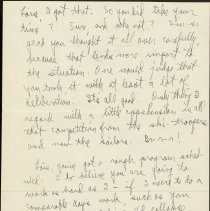 Lois, I got that. So you did take your
time? Sure and why not? I'm so
glad you thought it all over carefully
because that lends more support to
the situation. One would judge that
you took it with at least a bit of
deliberation. It's all good. Only thing I
regard with a little apprehension is all
that competition from the ski-troopers
and now the sailors. Br-r-r!
Lois, you've got a rough program sched
uled. I do believe you are going to
work as hard as I - if I were to do a
comparable days work such as your